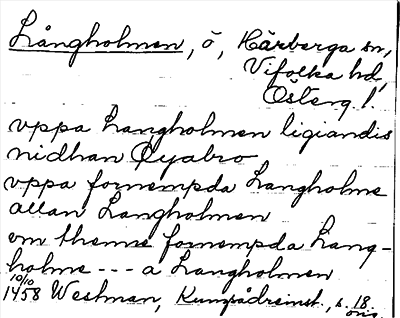 Långholmen, ö, Härberga sn,
Vifolka hd,
Österg l.
vppa langholmen ligiandis
nidhan Øyabro
vppa fornempda Langholme
allan Langholmen
om themne fornempda Lang-
holme --- a Langholmen
10/10
1458 Westman, s. 18.
orig.